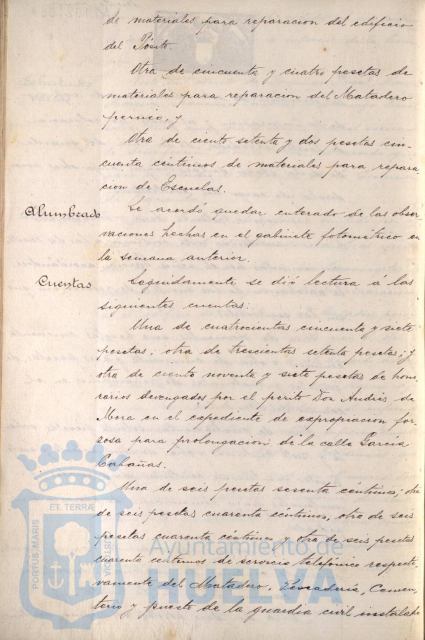 de materiales para reparacion del edificio
del Pósito.
Otra de cincuenta y cuatro pesetas de
materiales para reparacion del Matadero
pernio, y
Otra de ciento setenta y dos pesetas cin-
cuenta céntimos de materiales para repara
cion de Escuelas.
Alumbrado
Se acordó quedar enterado de las obser
vaciones hechas en el gabinete fotométrico en
la semana anterior.
Cuentas
Seguidamente se dió lectura á las
siguientes cuentas:
Una de cuatrocientas cincuenta y siete
pesetas, otra de trescientas setenta pesetas; y
otra de ciento noventa y siete pesetas de hono
rarios devengados por el perito Don Andrés de
Mora en el expediente de expropiacion for
zosa para prolongacion de la calle Garcia
Cabañas.
Una de seis pesetas sesenta céntimos; otra
de seis pesetas cuarenta céntimos, otra de seis
pesetas cuarenta céntimos y otra de seis pesetas
cuarenta centimos de servicio telefónico respecti
vamente del Matadero, Pescadería, Cemen
terio y puesto de la guardia civil instalado
PORTUS MARIS ET TERRAE CUSTODIA
Ayuntamiento de
HUELVA